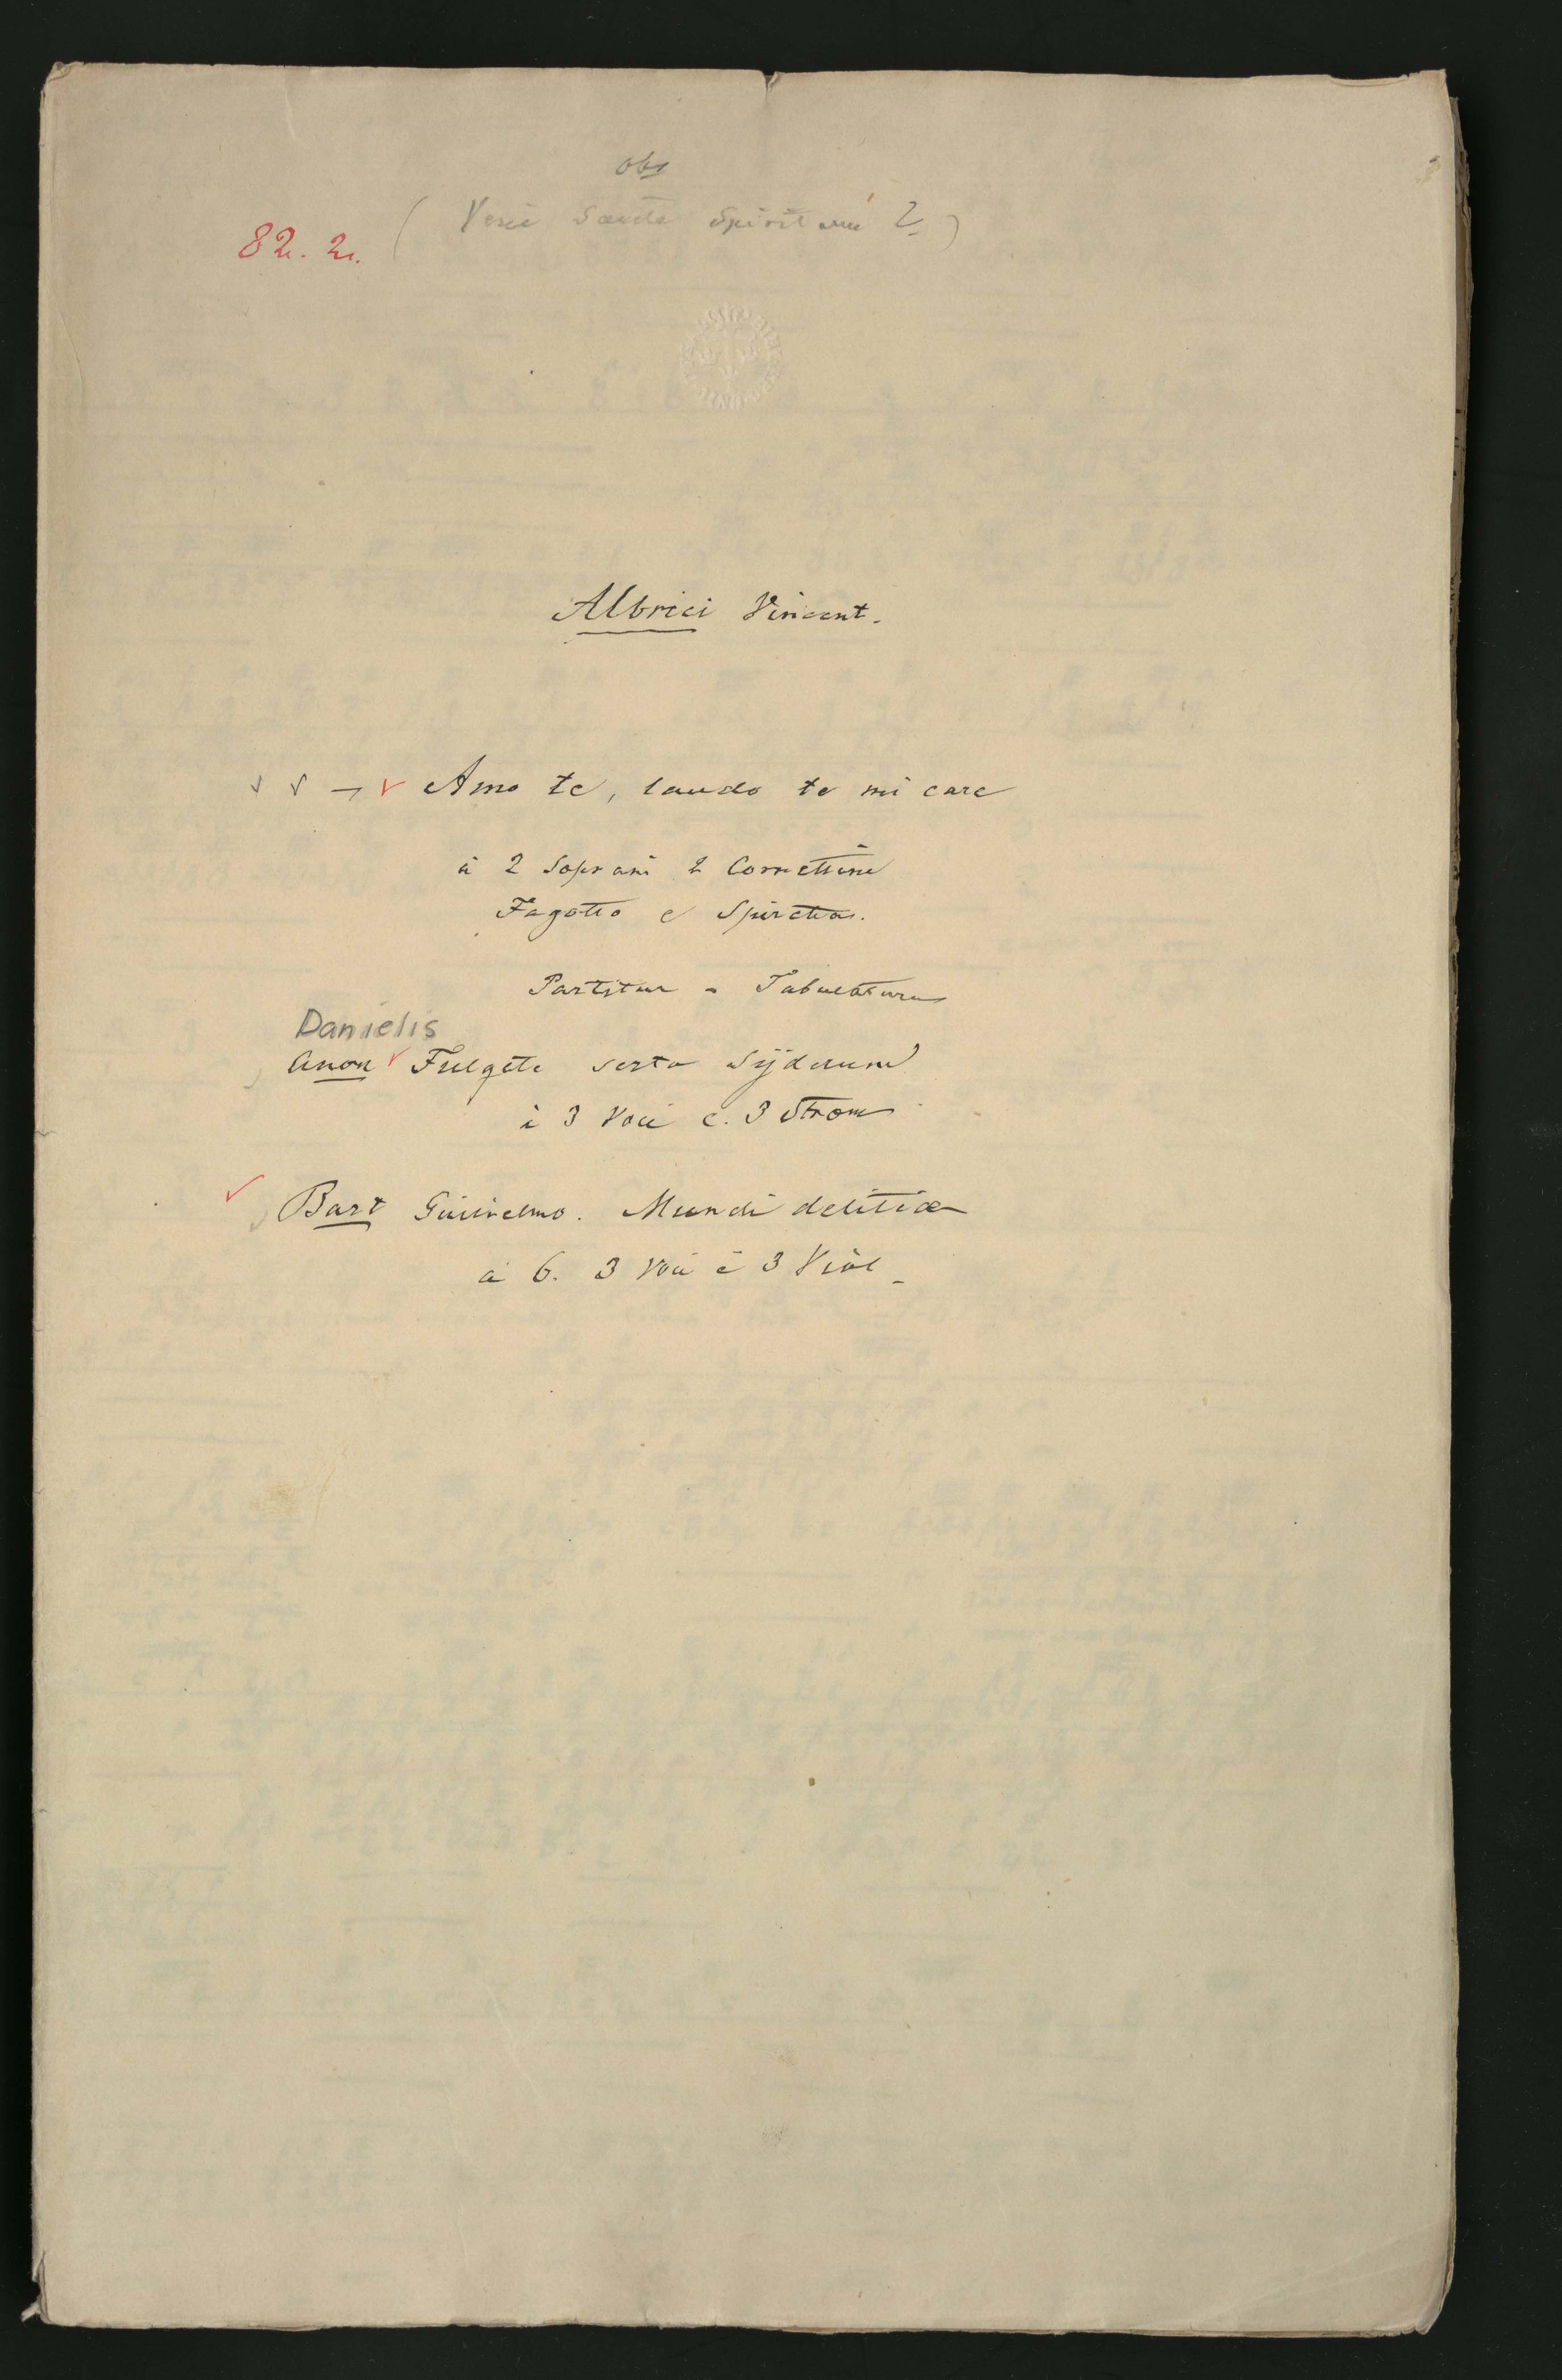 obs
82. 2. ( Veni Sancte Spiritus 2 )
Albrici Vincent.
Amo te, laudo te mi care
à 2 Soprani 2 Cornettini
Fagotto e Spinetta.
Partitur - Tabulatura
Danielis
Anon Fulgete serta Sÿderum
à 3 Voci e. 3 Strom
Bart Guilielmo. Mundi delitiæ
a 6. 3 Voci è 3 Viol